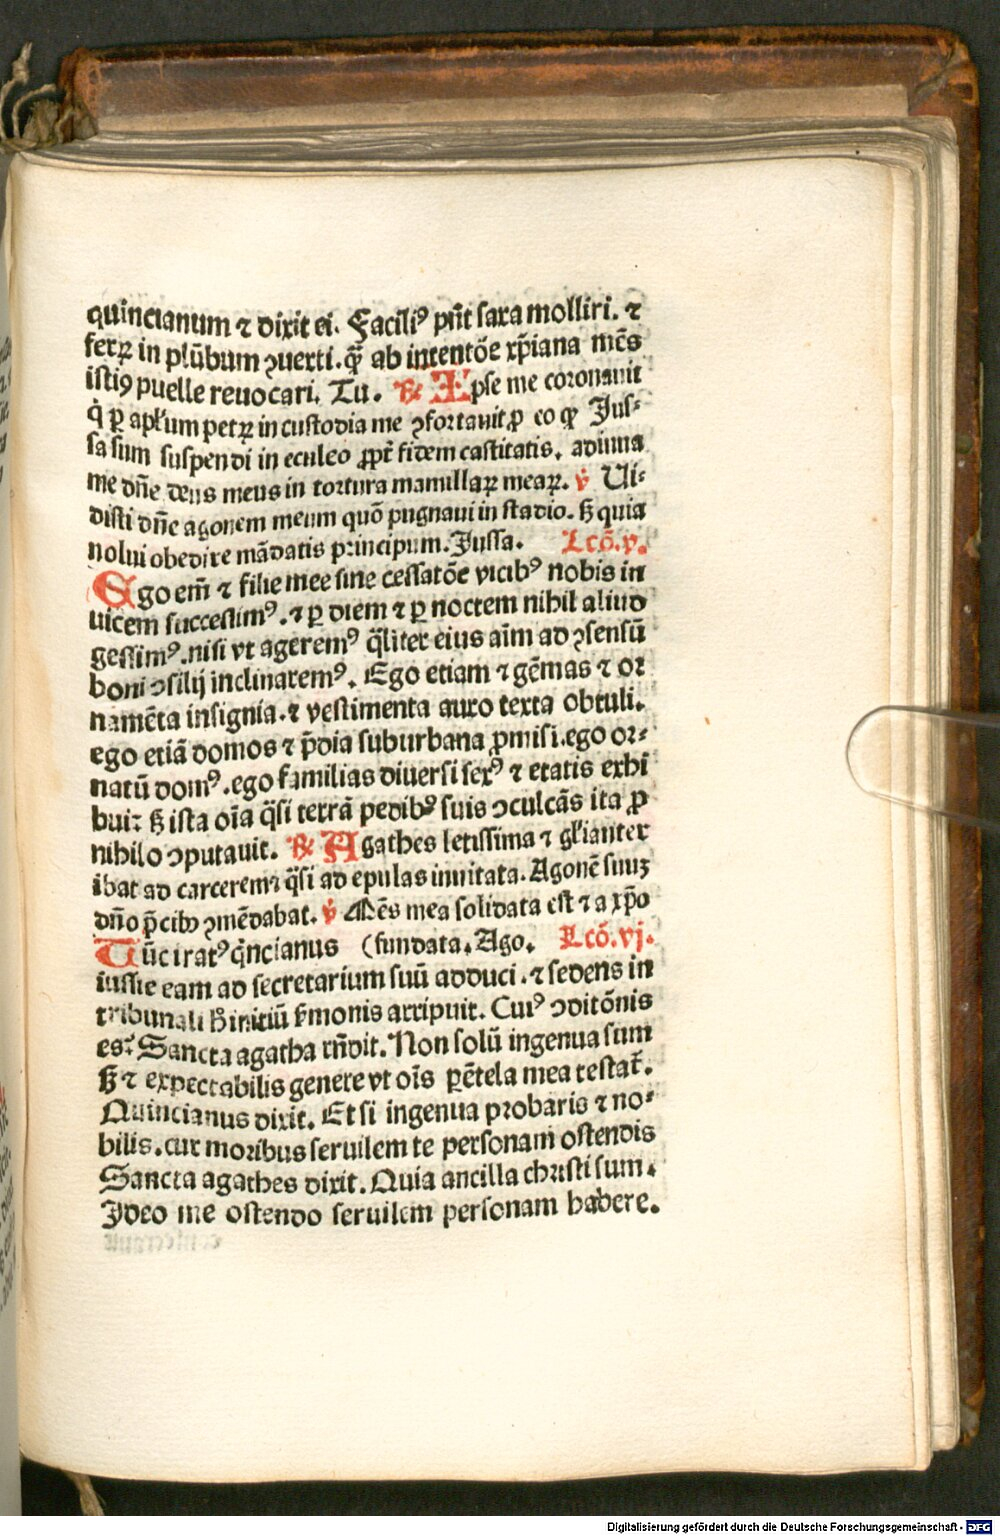 quincianum ⁊ dixit ei. Facili⁹ pn̄t saxa molliri. ⁊
ferꝝ in plūbum ꝯuerti. q̄ꝫ ab intentōe xp̄iana mēs
isti⁹ puelle reuocari. Tu. ℟ Ipse me coronauit
q̇ ꝑ apl̄um petꝝ in custodia me ꝯfortauit ꝓ eo ꝙ Jus⸗
sa sum suspendi in eculeo ꝓpt̄ fidem castitatis. adiuua
me dn̄e deus meus in tortura mamillaꝝ meaꝝ. ℣ Ui⸗
disti dn̄e agonem meum quō pugnaui in stadio. sꝫ quia
nolui obedire mādatis principum. Jussa. Lcō.v.
Ego em̄ ⁊ filie mee sine cessatōe vicib⁹ nobis in
uicem successim⁹. ⁊ ꝑ diem ⁊ ꝑ noctem nihil aliud
gessim⁹. nisi vt agerem⁹ q̄liter eius aīm ad ꝯsensū
boni ꝯsilij inclinarem⁹. Ego etiam ⁊ gēmas ⁊ or
namēta insignia. ⁊ vestimenta auro texta obtuli.
ego etiā domos ⁊ p̄dia suburbana ꝓmisi. ego or⸗
natū dom⁹. ego familias diuersi sex⁹ ⁊ etatis exhi
bui: sꝫ ista oīa q̄si terrā pedib⁹ suis ꝯculcās ita ꝓ
nihilo ꝯputauit. ℟ Agathes letissima ⁊ gl̄ianter
ibat ad carcerem: q̄si ad epulas inuitata. Agonē suuꝫ
dn̄o p̄cib⁹ ꝯmēdabat. ℣ Mēs mea solidata est ⁊ a xp̄o
Tūc irat⁹ q̇ncianus (fundata. Ago. Lcō.vj.
iussie eam ad secretarium suū adduci. ⁊ sedens in
tribunali hͦ initiū s̄monis arripuit. Cui⁹ ꝯditōnis
es: Sancta agatha rn̄dit. Non solū ingenua sum
sꝫ ⁊ expectabilis genere vt oīs parētela mea testat̄.
Quincianus dixit. Et si ingenua probaris ⁊ no⸗
bilis. cur moribus seruilem te personam ostendis
Sancta agathes dixit. Quia ancilla christi sum.
Jdeo me ostendo seruilem personam habere.
Digitalisierung gefördert durch die Deutsche Forschungsgemeinschaft - DFG